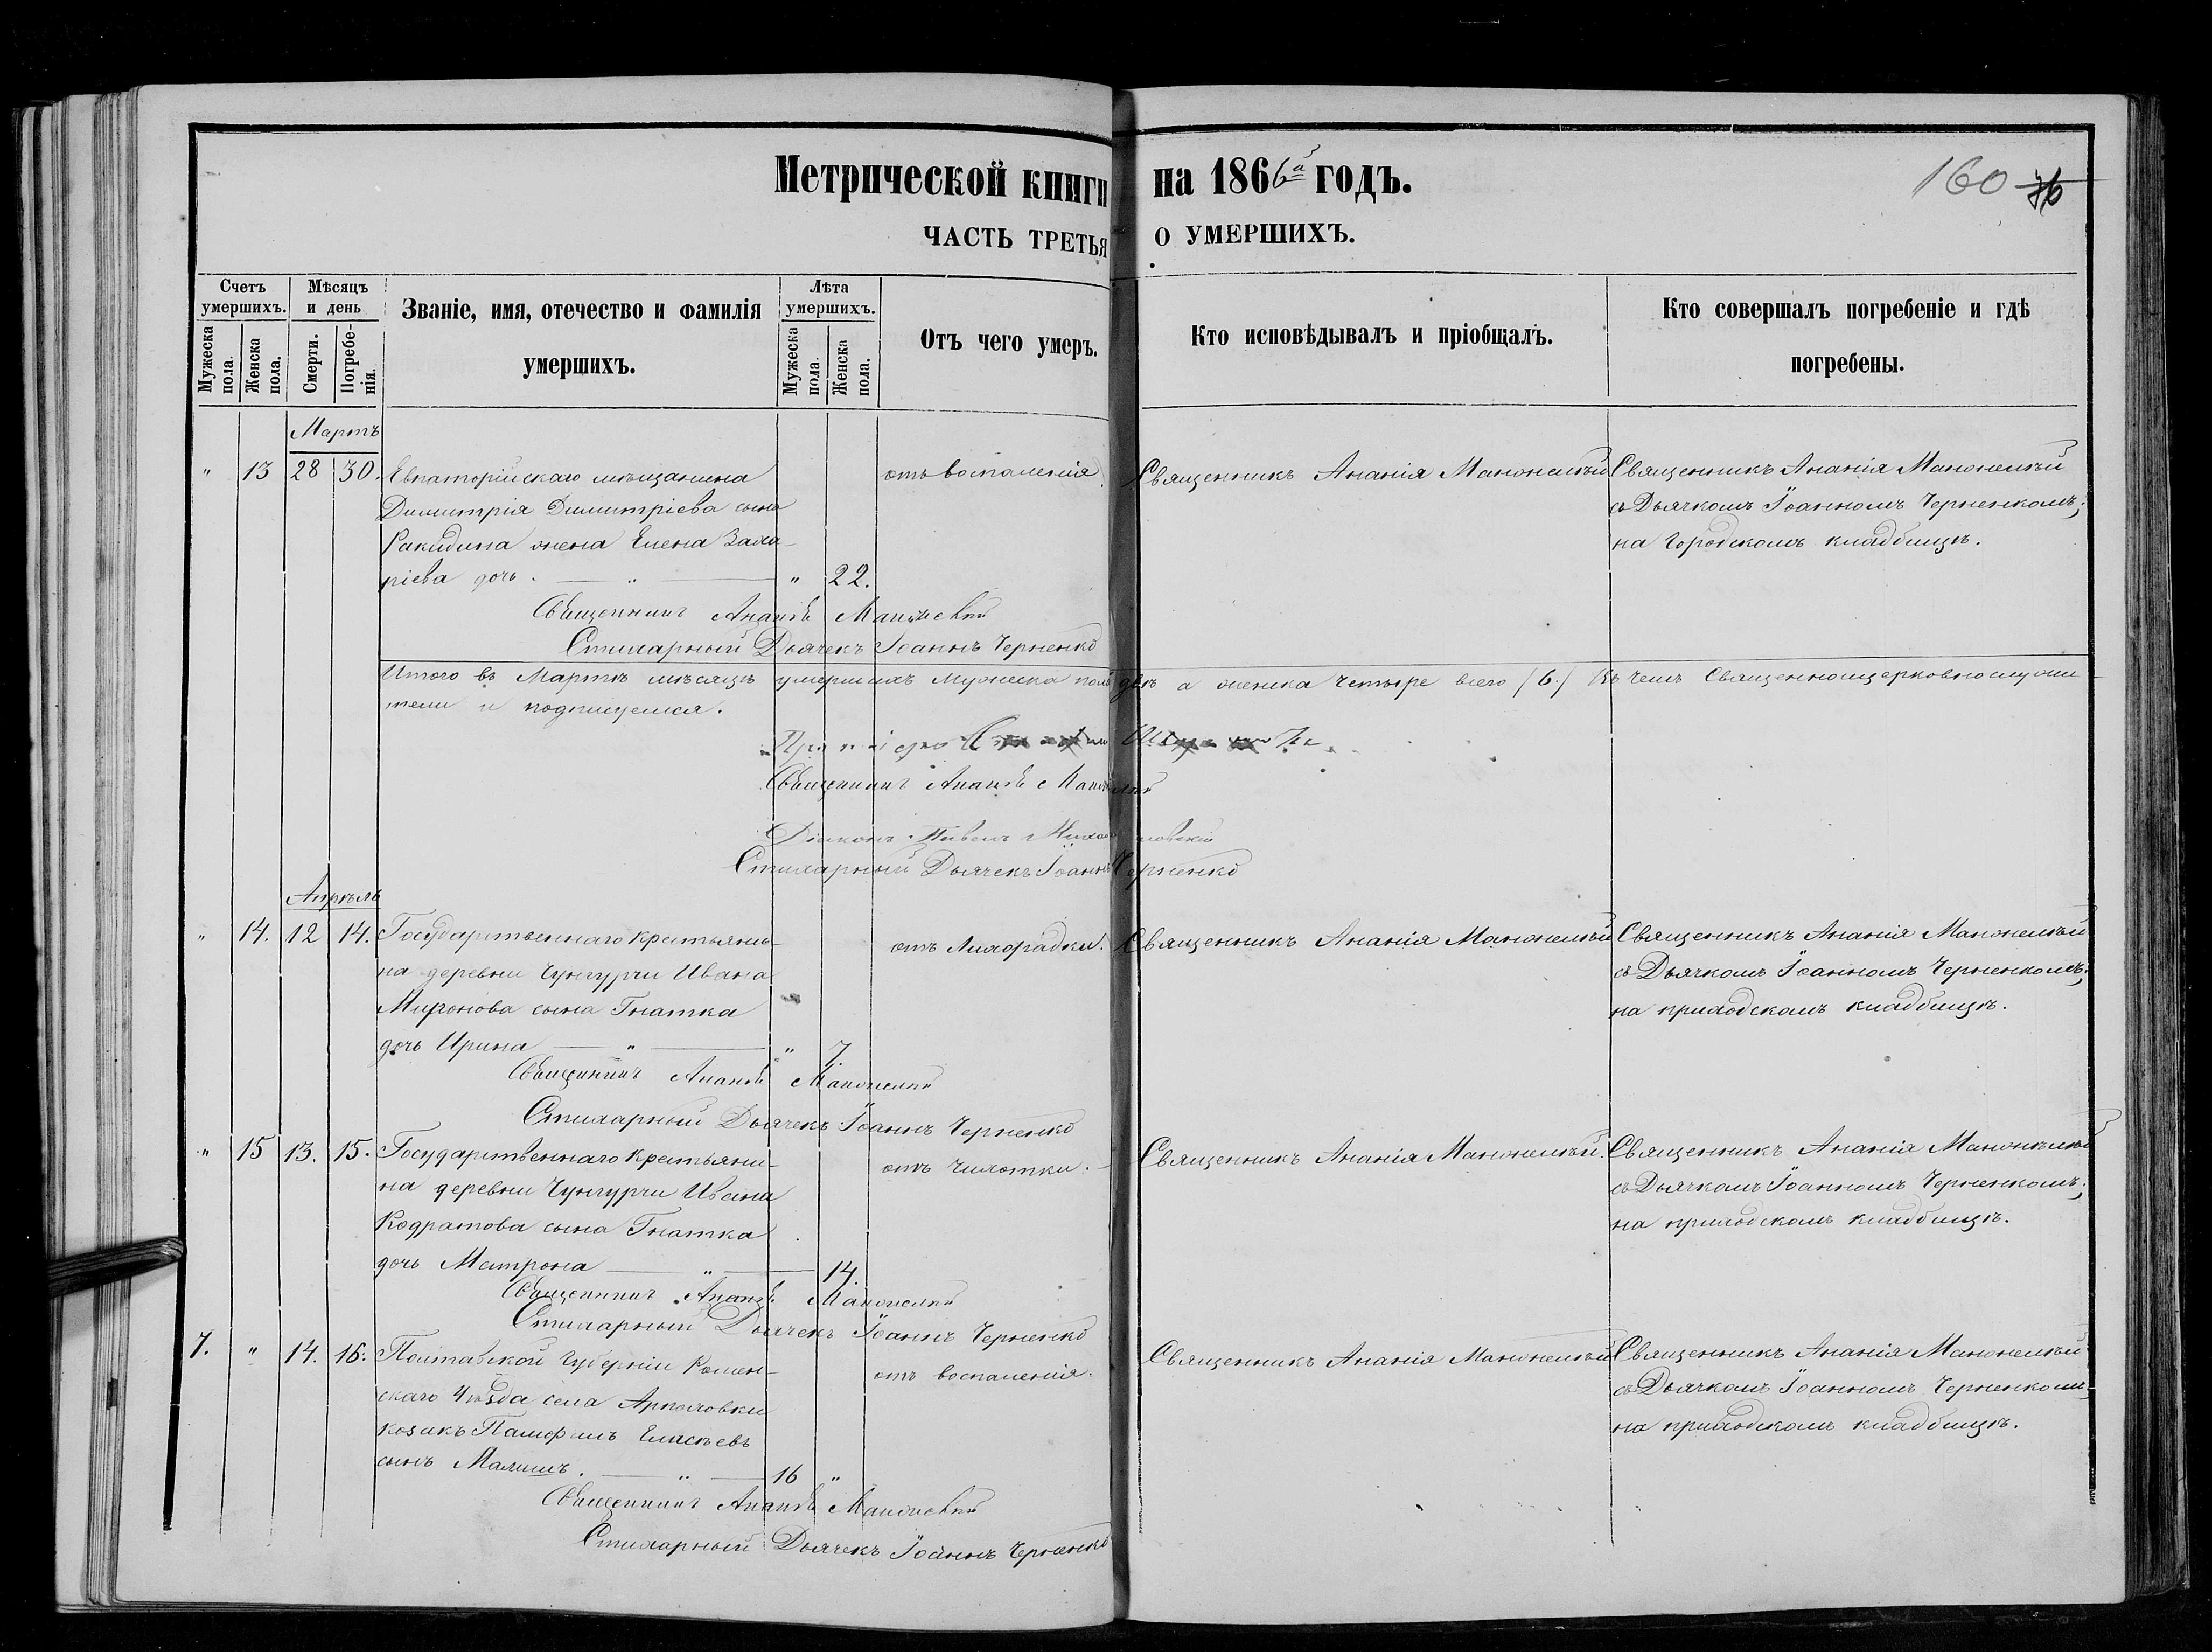 Метрической книги на 1866й годъ.
160 76
ЧАСТЬ ТРЕТЬЯ О УМЕРШИХЪ.
Счетъ умершихъ.
Мужеска пола.
Женска пола.
Мѣсяцъ и день
Смерти.
Погребенія.
Званіе, имя, отечество и фамилія умершихъ.
Лѣта умершихъ.
Мужеска пола.
Женска пола.
Отъ чего умеръ.
Кто исповѣдывалъ и пріобщалъ.
Кто совершалъ погребеніе и гдѣ погребены.
Мартъ
" 13 28 30. Евпаторійскаго мѣщанина
Димитрія Димитріева сына
Ракидина жена Елена Заха-
ріева дочь. " " 22.
отъ воспаленія.
Священникъ Ананія Манжелѣй
Священникъ Ананія Манжелѣй
съ Дьячкомъ Іоанномъ Черненкомъ;
на Городскомъ кладбищѣ.
Священникъ Ананія Манжелѣй
Стихарный Дьячекъ Іоаннъ Черненко
Итого въ Мартѣ мѣсяцѣ умершихъ Мужеска пола два а женска четыре всего (6.) Въ чемъ Священноцерковнослужи-
тели и подписуемся.
Священникъ Ананія Манжелѣй
Діаконъ Павелъ
Стихарный Дьячекъ Іоаннъ Черненко
Апрѣль
" 14. 12 14. Государственнаго крестьяни-
на деревни Чунгурчи Ивана
Миронова сына Гнатка
дочь Ирина " " 7.
отъ Лихорадки.
Священникъ Ананія Манжелѣй
Священникъ Ананія Манжелѣй
съ Дьячкомъ Іоанномъ Черненкомъ;
на приходскомъ кладбищѣ.
Священникъ Ананія Манжелѣй
Стихарный Дьячекъ Іоаннъ Черненко
" 15 13. 15. Государственнаго крестьяни-
на деревни Чунгурчи Ивана
Кодратова сына Гнатка
дочь Матрона " 14.
отъ Чихотки.
Священникъ Ананія Манжелѣй.
Священникъ Ананія Манжелѣй
съ Дьячкомъ Іоанномъ Черненкомъ;
на приходскомъ кладбищѣ.
Священникъ Ананія Манжелѣй
Стихарный Дьячекъ Іоаннъ Черненко
7. " 14. 16. Полтавской Губерніи Ромен-
скаго Уѣзда села Артюховки
козакъ Памфилъ Елисѣевъ
сынъ Малишъ. " 16 "
отъ воспаленія.
Священникъ Ананія Манжелѣй
Священникъ Ананія Манжелѣй
съ Дьячкомъ Іоанномъ Черненкомъ
на приходскомъ кладбищѣ.
Священникъ Ананія Манжелѣй
Стихарный Дьячекъ Іоаннъ Черненко